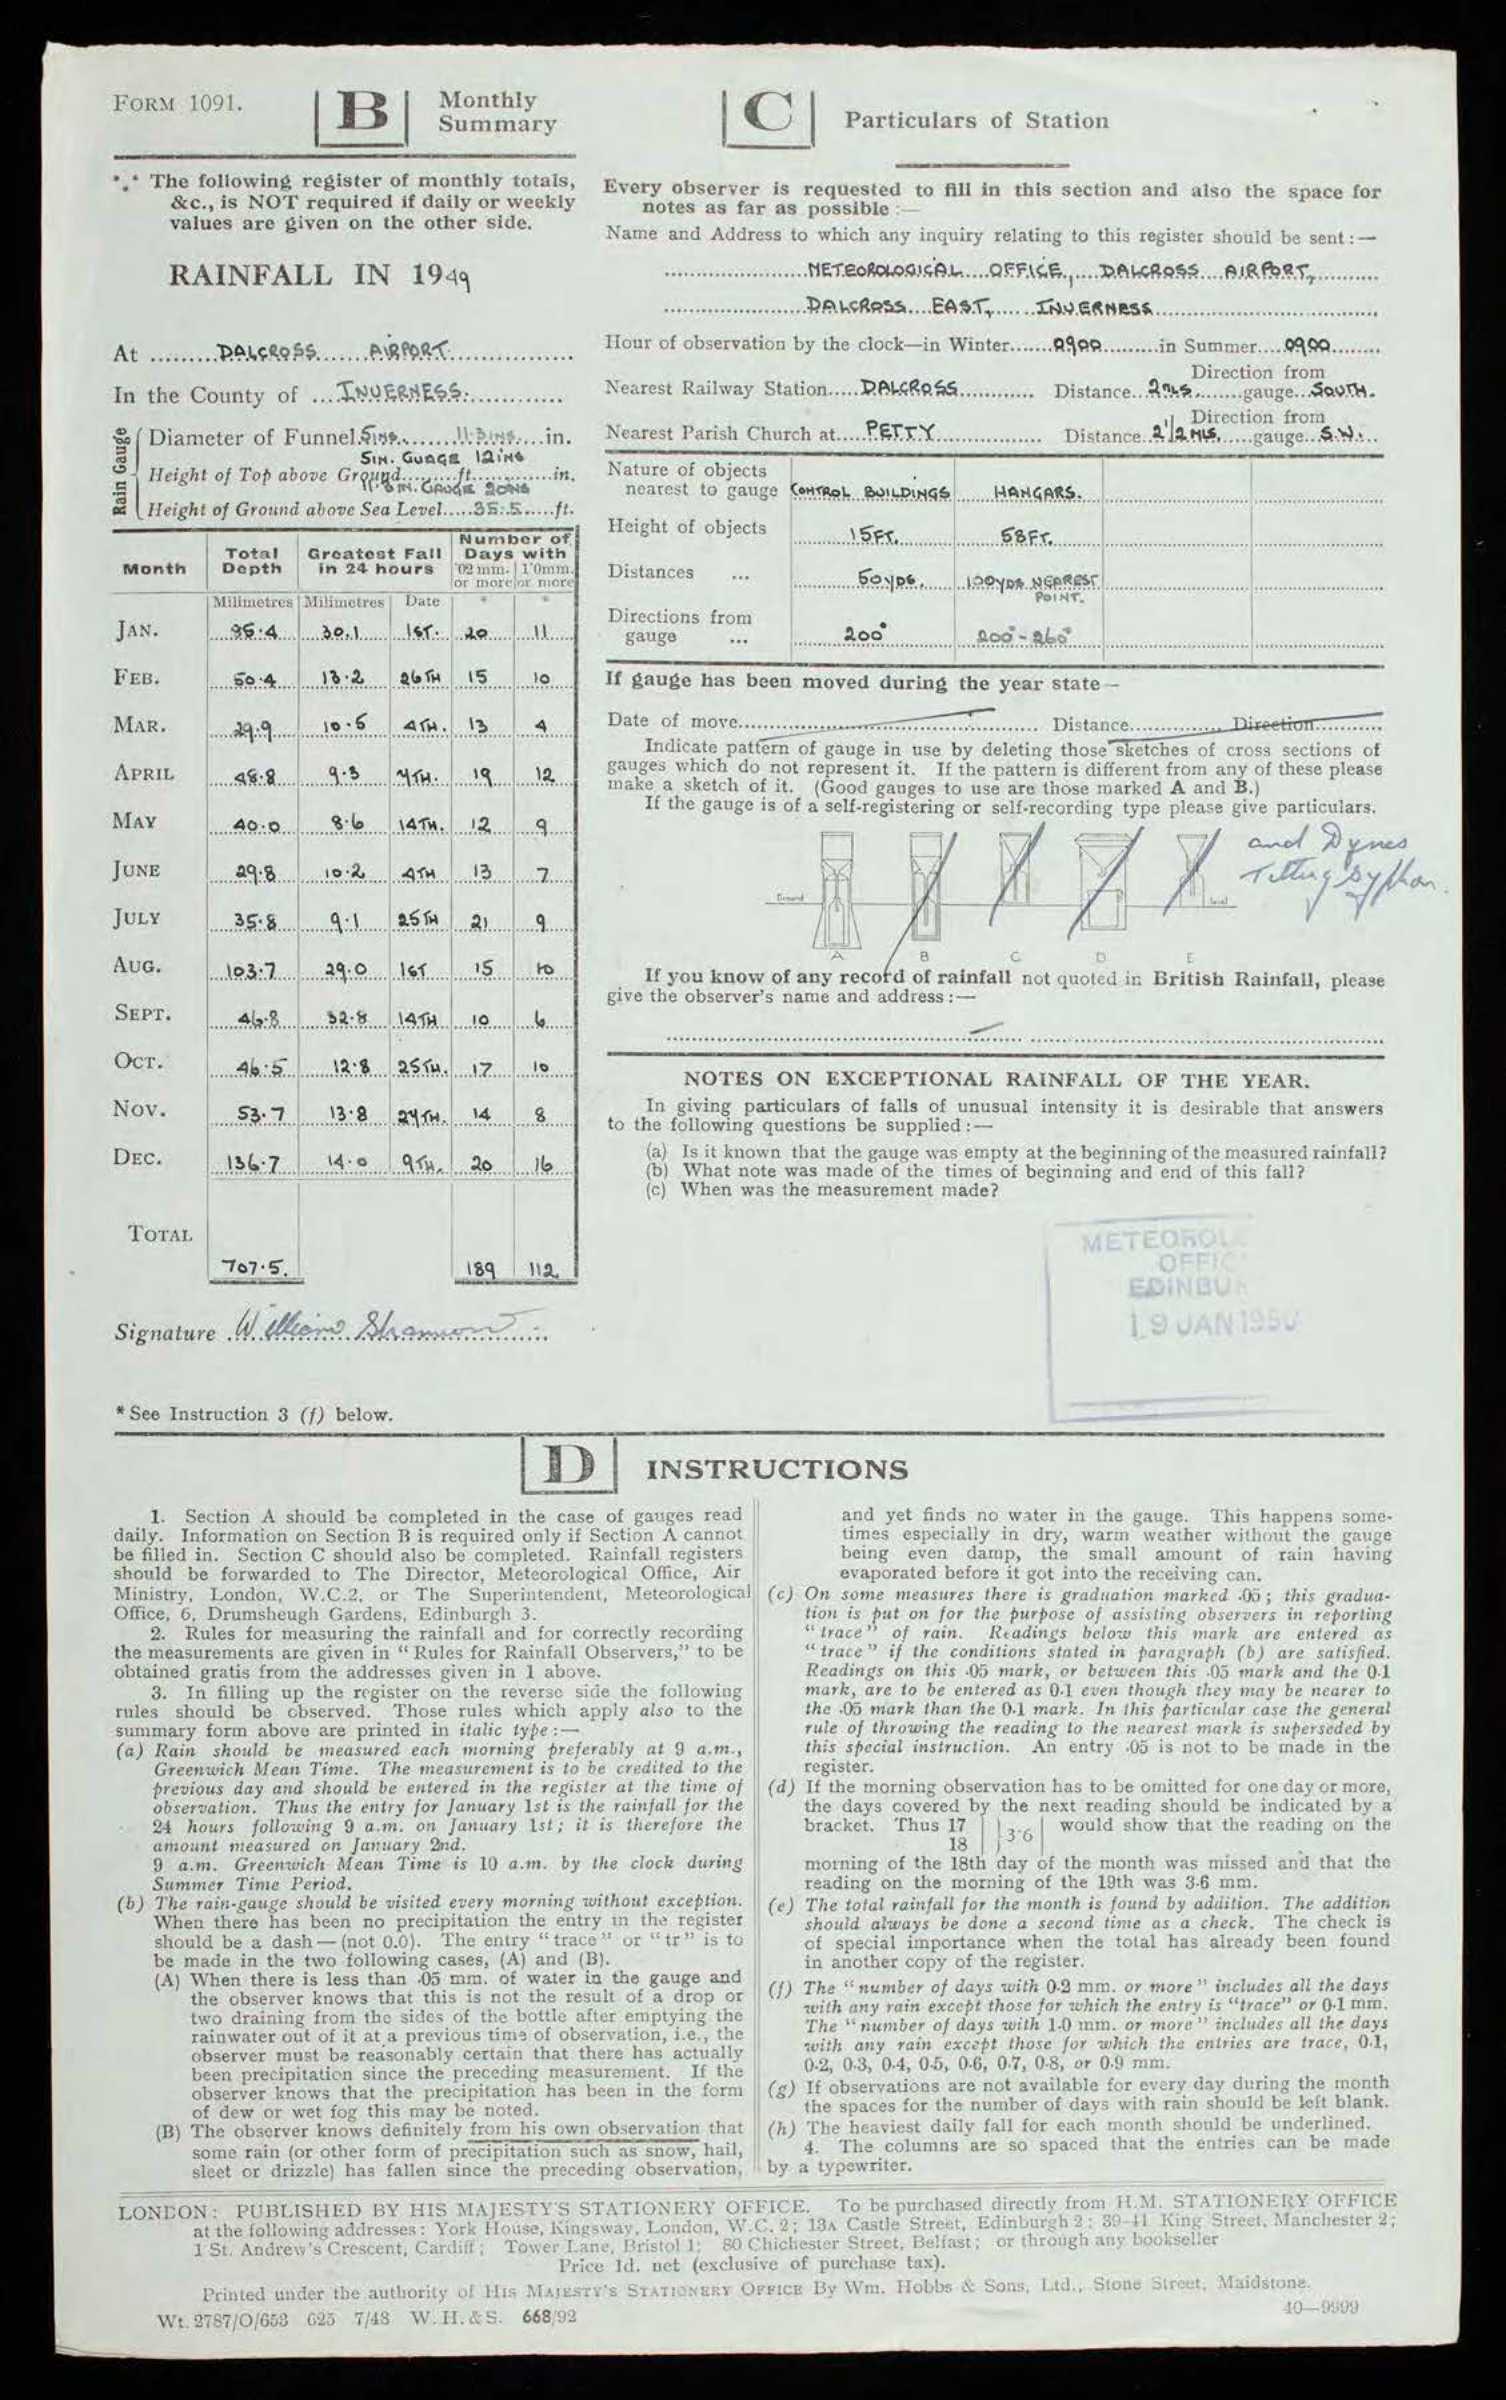 FORM 1091.
B
Monthly
Summary
*.* The following register of monthly totals,
&c., is NOT required if daily or weekly
values are given on the other side.
RAINFALL IN 1949
At DALCROSS AIRPORT
In the County of INVERNESS.
Rain Gauge
Diameter of Funnel 5INS. 11.3INS. in.
5IN. GUAGE 12INS
Height of Top above Ground ft. in.
11.3IN. GAUGE 20INS
Height of Ground above Sea Level 35.5 ft.
Month | Total Depth | Greatest Fall in 24 hours | Number of Days with
·02 mm. or more | 1·0mm. or more
Milimetres | Milimetres | Date | * | *
JAN. 95.4 30.1 1ST. 20 11
FEB. 50.4 13.2 26TH 15 10
MAR. 29.9 10.5 4TH. 13 4
APRIL 48.8 9.3 7TH. 19 12
MAY 40.0 8.6 14TH. 12 9
JUNE 29.8 10.2 4TH 13 7
JULY 35.8 9.1 25TH 21 9
AUG. 103.7 29.0 1ST 15 10
SEPT. 46.8 32.8 14TH 10 6
OCT. 46.5 12.8 25TH. 17 10
NOV. 53.7 13.8 27TH. 14 8
DEC. 136.7 14.0 9TH. 20 16
TOTAL
707.5. 189 112
Signature William Shannon
* See Instruction 3 (f) below.
C
Particulars of Station
Every observer is requested to fill in this section and also the space for
notes as far as possible :—
Name and Address to which any inquiry relating to this register should be sent :—
METEOROLOGICAL OFFICE, DALCROSS AIRPORT,
DALCROSS EAST, INVERNESS
Hour of observation by the clock—in Winter 0900 in Summer 0900
Direction from
Nearest Railway Station DALCROSS Distance 2MLS gauge SOUTH.
Direction from
Nearest Parish Church at PETTY Distance 2 1/2 MLS. gauge S.W.
Nature of objects
nearest to gauge CONTROL BUILDINGS HANGARS.
Height of objects 15FT. 58FT.
Distances ... 50YDS. 100YDS NEAREST
POINT.
Directions from
gauge ... 200° 200°-260°
If gauge has been moved during the year state—
Date of move Distance Direction
Indicate pattern of gauge in use by deleting those sketches of cross sections of
gauges which do not represent it. If the pattern is different from any of these please
make a sketch of it. (Good gauges to use are those marked A and B.)
If the gauge is of a self-registering or self-recording type please give particulars.
and Dynes
Tilting Syphon.
Ground Level
A B C D E
If you know of any record of rainfall not quoted in British Rainfall, please
give the observer's name and address :—
NOTES ON EXCEPTIONAL RAINFALL OF THE YEAR.
In giving particulars of falls of unusual intensity it is desirable that answers
to the following questions be supplied :—
(a) Is it known that the gauge was empty at the beginning of the measured rainfall?
(b) What note was made of the times of beginning and end of this fall?
(c) When was the measurement made?
METEOROL
OFFIC
EDINBU
19 JAN 1950
D
INSTRUCTIONS
1. Section A should be completed in the case of gauges read
daily. Information on Section B is required only if Section A cannot
be filled in. Section C should also be completed. Rainfall registers
should be forwarded to The Director, Meteorological Office, Air
Ministry, London, W.C.2, or The Superintendent, Meteorological
Office, 6, Drumsheugh Gardens, Edinburgh 3.
2. Rules for measuring the rainfall and for correctly recording
the measurements are given in "Rules for Rainfall Observers," to be
obtained gratis from the addresses given in 1 above.
3. In filling up the register on the reverse side the following
rules should be observed. Those rules which apply also to the
summary form above are printed in italic type :—
(a) Rain should be measured each morning preferably at 9 a.m.,
Greenwich Mean Time. The measurement is to be credited to the
previous day and should be entered in the register at the time of
observation. Thus the entry for January 1st is the rainfall for the
24 hours following 9 a.m. on January 1st; it is therefore the
amount measured on January 2nd.
9 a.m. Greenwich Mean Time is 10 a.m. by the clock during
Summer Time Period.
(b) The rain-gauge should be visited every morning without exception.
When there has been no precipitation the entry in the register
should be a dash—(not 0.0). The entry "trace" or "tr" is to
be made in the two following cases, (A) and (B).
(A) When there is less than ·05 mm. of water in the gauge and
the observer knows that this is not the result of a drop or
two draining from the sides of the bottle after emptying the
rainwater out of it at a previous time of observation, i.e., the
observer must be reasonably certain that there has actually
been precipitation since the preceding measurement. If the
observer knows that the precipitation has been in the form
of dew or wet fog this may be noted.
(B) The observer knows definitely from his own observation that
some rain (or other form of precipitation such as snow, hail,
sleet or drizzle) has fallen since the preceding observation,
and yet finds no water in the gauge. This happens some-
times especially in dry, warm weather without the gauge
being even damp, the small amount of rain having
evaporated before it got into the receiving can.
(c) On some measures there is graduation marked ·05; this gradua-
tion is put on for the purpose of assisting observers in reporting
"trace" of rain. Readings below this mark are entered as
"trace" if the conditions stated in paragraph (b) are satisfied.
Readings on this ·05 mark, or between this ·05 mark and the 0·1
mark, are to be entered as 0·1 even though they may be nearer to
the ·05 mark than the 0·1 mark. In this particular case the general
rule of throwing the reading to the nearest mark is superseded by
this special instruction. An entry ·05 is not to be made in the
register.
(d) If the morning observation has to be omitted for one day or more,
the days covered by the next reading should be indicated by a
bracket. Thus 17 18 } 3·6 would show that the reading on the
morning of the 18th day of the month was missed and that the
reading on the morning of the 19th was 3·6 mm.
(e) The total rainfall for the month is found by addition. The addition
should always be done a second time as a check. The check is
of special importance when the total has already been found
in another copy of the register.
(f) The "number of days with 0·2 mm. or more" includes all the days
with any rain except those for which the entry is "trace" or 0·1 mm.
The "number of days with 1·0 mm. or more" includes all the days
with any rain except those for which the entries are trace, 0·1,
0·2, 0·3, 0·4, 0·5, 0·6, 0·7, 0·8, or 0·9 mm.
(g) If observations are not available for every day during the month
the spaces for the number of days with rain should be left blank.
(h) The heaviest daily fall for each month should be underlined.
4. The columns are so spaced that the entries can be made
by a typewriter.
LONDON: PUBLISHED BY HIS MAJESTY'S STATIONERY OFFICE. To be purchased directly from H.M. STATIONERY OFFICE
at the following addresses: York House, Kingsway, London, W.C. 2; 13A Castle Street, Edinburgh 2; 39-41 King Street, Manchester 2;
1 St. Andrew's Crescent, Cardiff; Tower Lane, Bristol 1; 80 Chichester Street, Belfast; or through any bookseller
Price 1d. net (exclusive of purchase tax).
Printed under the authority of HIS MAJESTY'S STATIONERY OFFICE By Wm. Hobbs & Sons, Ltd., Stone Street, Maidstone.
40—9999
Wt. 2787/O/653 625 7/48 W.H.&S. 668/92